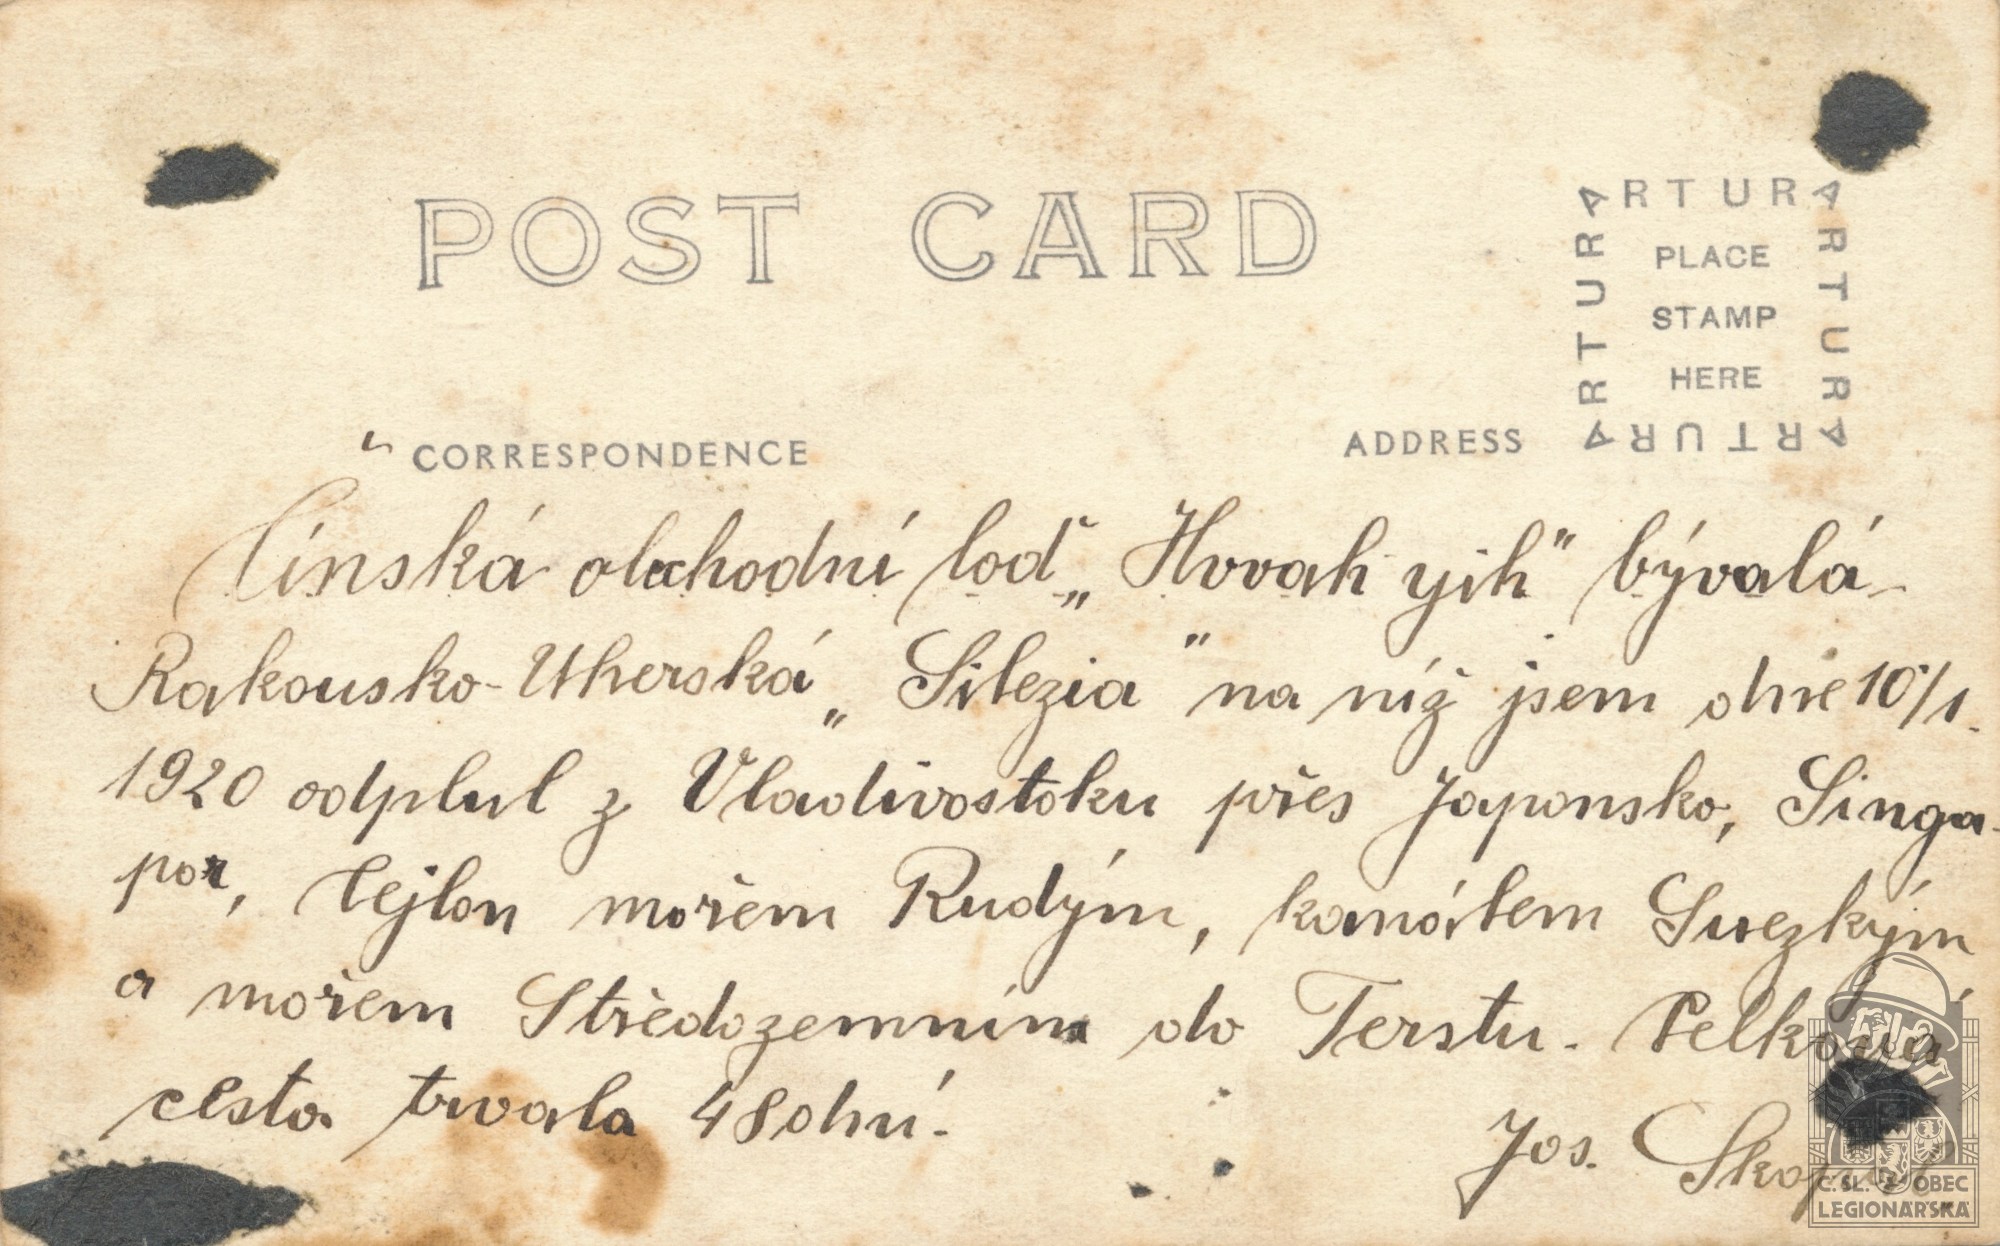 POST CARD
ARTURA
ARTURA
ARTURA
ARTURA
PLACE
STAMP
HERE
CORRESPONDENCE
ADDRESS
Čínská obchodní loď „Hwah yih" bývalá
Rakousko-Uherská „Silezia" na níž jsem dne 10/1.
1920 odplul z Vladivostoku přes Japonsko, Singa-
por, Cejlon mořem Rudým, kanálem Suezkým
a mořem Středozemním do Terstu. Celková
cesta trvala 48 dní.
Jos.
Č.SL. OBEC
LEGIONÁŘSKÁ